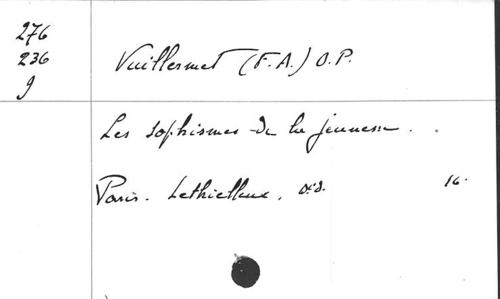 276
236
9
Vuillermet (F.A.) O.P.
Les sophismes de la jeunesse.
Paris. Lethielleux, 16.